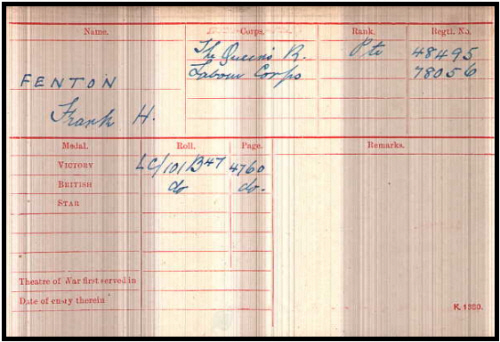 Name. Corps. Rank. Regtl. No.
The Queen's R. Pte 48495
Labour Corps 78056
FENTON
Frank H.
Medal. Roll. Page. Remarks.
VICTORY LC/101 B47 4760
BRITISH do do.
STAR
Theatre of War first served in
Date of entry therein
K. 1380.